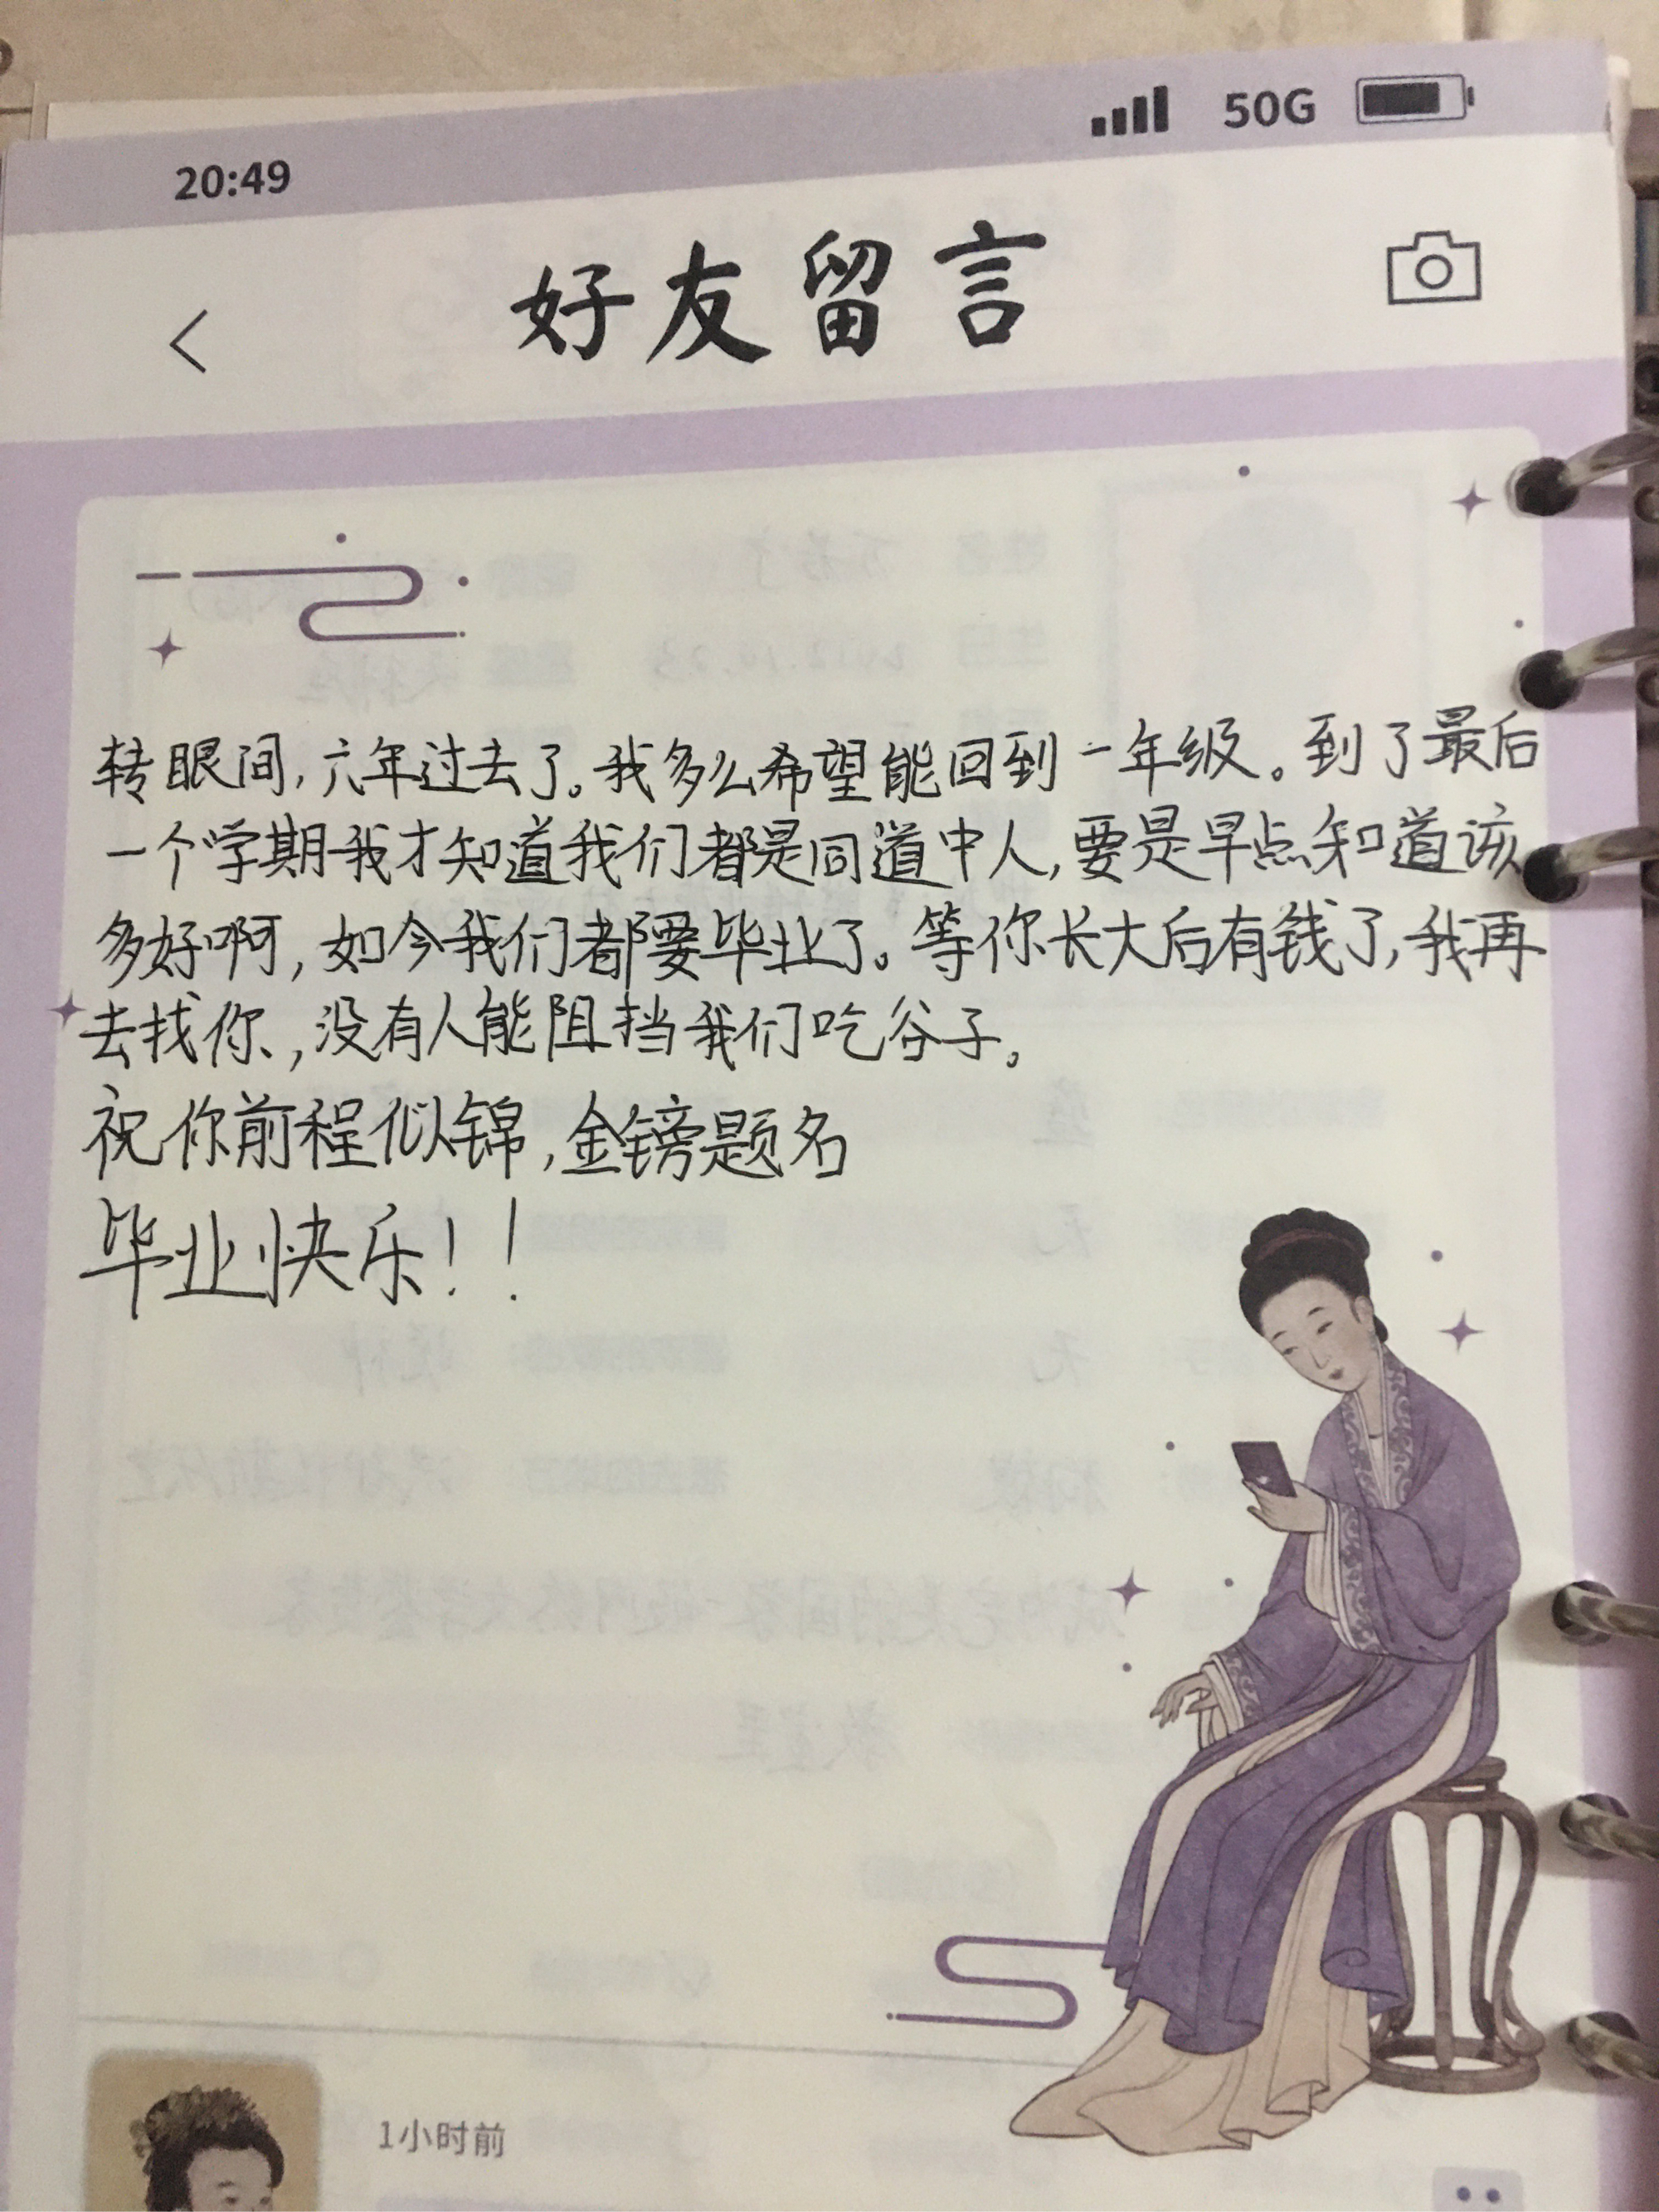 20:49
50G
好友留言
转眼间,六年过去了。我多么希望能回到一年级。到了最后
一个学期我才知道我们都是同道中人,要是早点知道该
多好啊,如今我们都要毕业了。等你长大后有钱了,我再
去找你,没有人能阻挡我们吃谷子。
祝你前程似锦,金镑题名
毕业快乐!!
1小时前